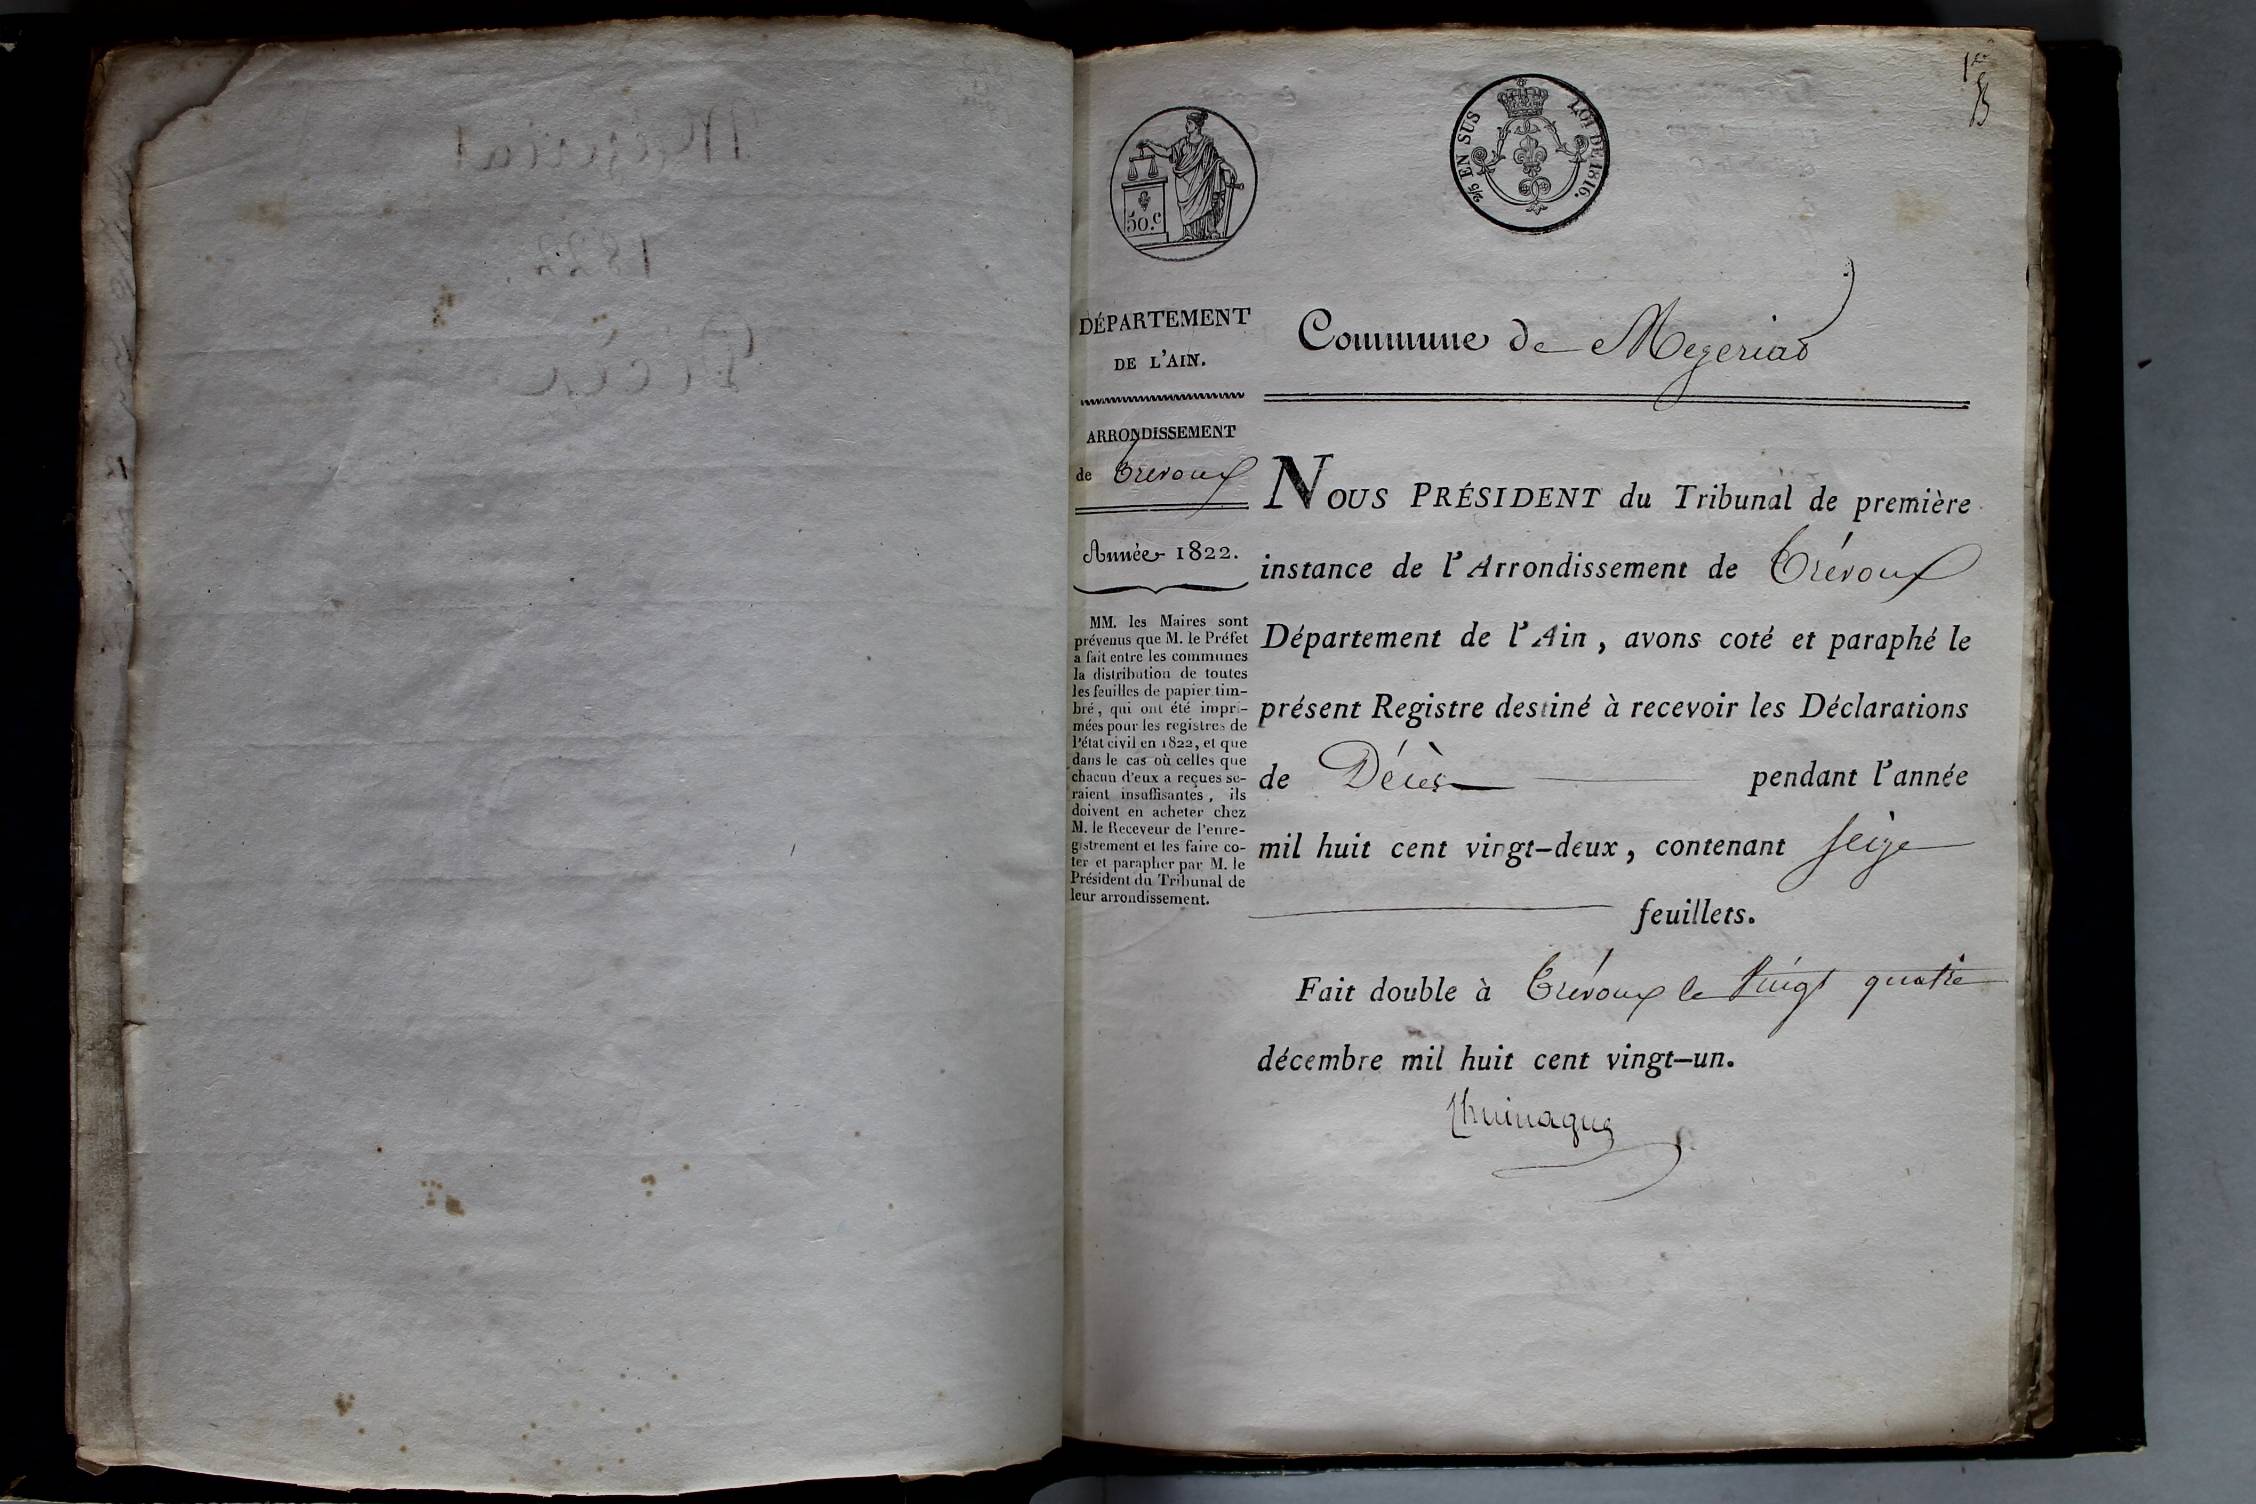 Mézérial
1822.
Décès
1er
50.c
2/5 EN SUS LOI DE 1816.
DÉPARTEMENT
DE L'AIN.
ARRONDISSEMENT
de Trévoux
Année 1822.
MM. les Maires sont
prévenus que M. le Préfet
a fait entre les communes
la distribution de toutes
les feuilles de papier tim-
bré, qui ont été impri-
mées pour les registres de
l'état civil en 1822, et que
dans le cas où celles que
chacun d'eux a reçues se-
raient insuffisantes, ils
doivent en acheter chez
M. le Receveur de l'enre-
gistrement et les faire co-
ter et parapher par M. le
Président du Tribunal de
leur arrondissement.
Commune de Mezeriat
NOUS PRÉSIDENT du Tribunal de première
instance de l'Arrondissement de Trévoux
Département de l'Ain, avons coté et paraphé le
présent Registre destiné à recevoir les Déclarations
de Décès pendant l'année
mil huit cent vingt-deux, contenant seize
feuillets.
Fait double à Trévoux le vingt quatre
décembre mil huit cent vingt-un.